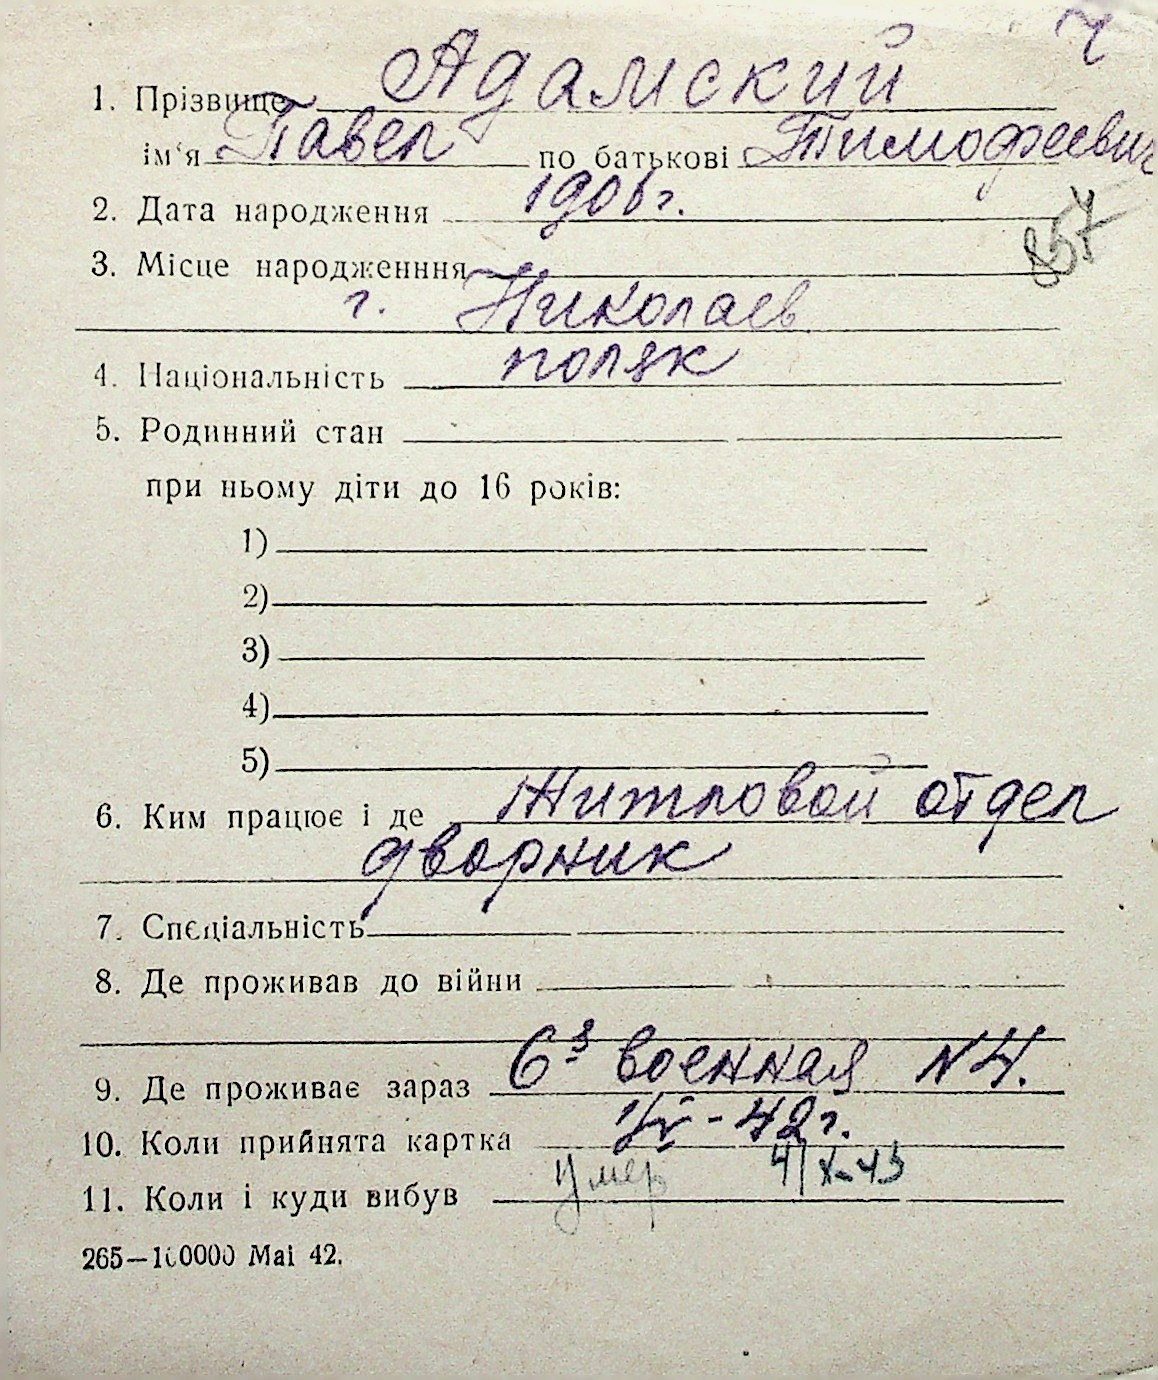 Ч
1. Прізвище Адамский
ім'я Павел по батькові Тимофеевич
2. Дата народження 1906 г.
857
3. Місце народженння
г. Николаев
4. Національність поляк
5. Родинний стан
при ньому діти до 16 років:
1)
2)
3)
4)
5)
6. Ким працює і де Житловой отдел
дворник
7. Спєціальність
8. Де проживав до війни
9. Де проживає зараз 6 военная N 4.
10. Коли прийнята картка - 42 г.
11. Коли і куди вибув Умер 4/X-43
265—100000 Mai 42.